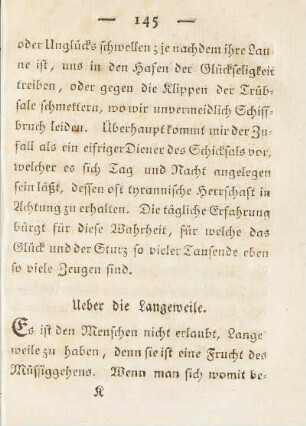 — 145 —
oder Unglücks schwellen; je nachdem ihre Lau
ne ist, uns in den Hafen der Glückseligkeit
treiben, oder gegen die Klippen der Trüb-
sale schmettern, wo wir unvermeidlich Schiff-
bruch leiden. Überhaupt kommt mir der Zu-
fall als ein eifriger Diener des Schicksals vor,
welcher es sich Tag und Nacht angelegen
sein läßt, dessen oft tyrannische Herrschaft in
Achtung zu erhalten. Die tägliche Erfahrung
bürgt für diese Wahrheit, für welche das
Glück und der Sturz so vieler Tausende eben
so viele Zeugen sind.
Ueber die Langeweile.
Es ist den Menschen nicht erlaubt, Lange
weile zu haben, denn sie ist eine Frucht des
Müssiggehens. Wenn man sich womit be-
K